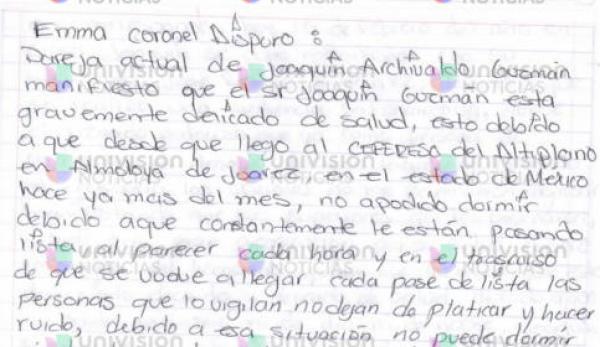 Emma coronel Aispuro :
Pareja actual de Joaquin Archivaldo Guzmán
manifiesto que el sr Joaquin Guzmán esta
gravemente delicado de salud, esto debido
a que desde que llego al CEFEReSO del Altiplano
en Almoloya de Joarez, en el estado de México
hace ya mas del mes, no apodido dormir
debido aque constantemente le están pasando
lista, al parecer cada hora y en el trascurso
de que se vuelve allegar cada pase de lista las
personas que lo vigilan no dejan de platicar y hacer
ruido, debido a esa situación no puede dormir